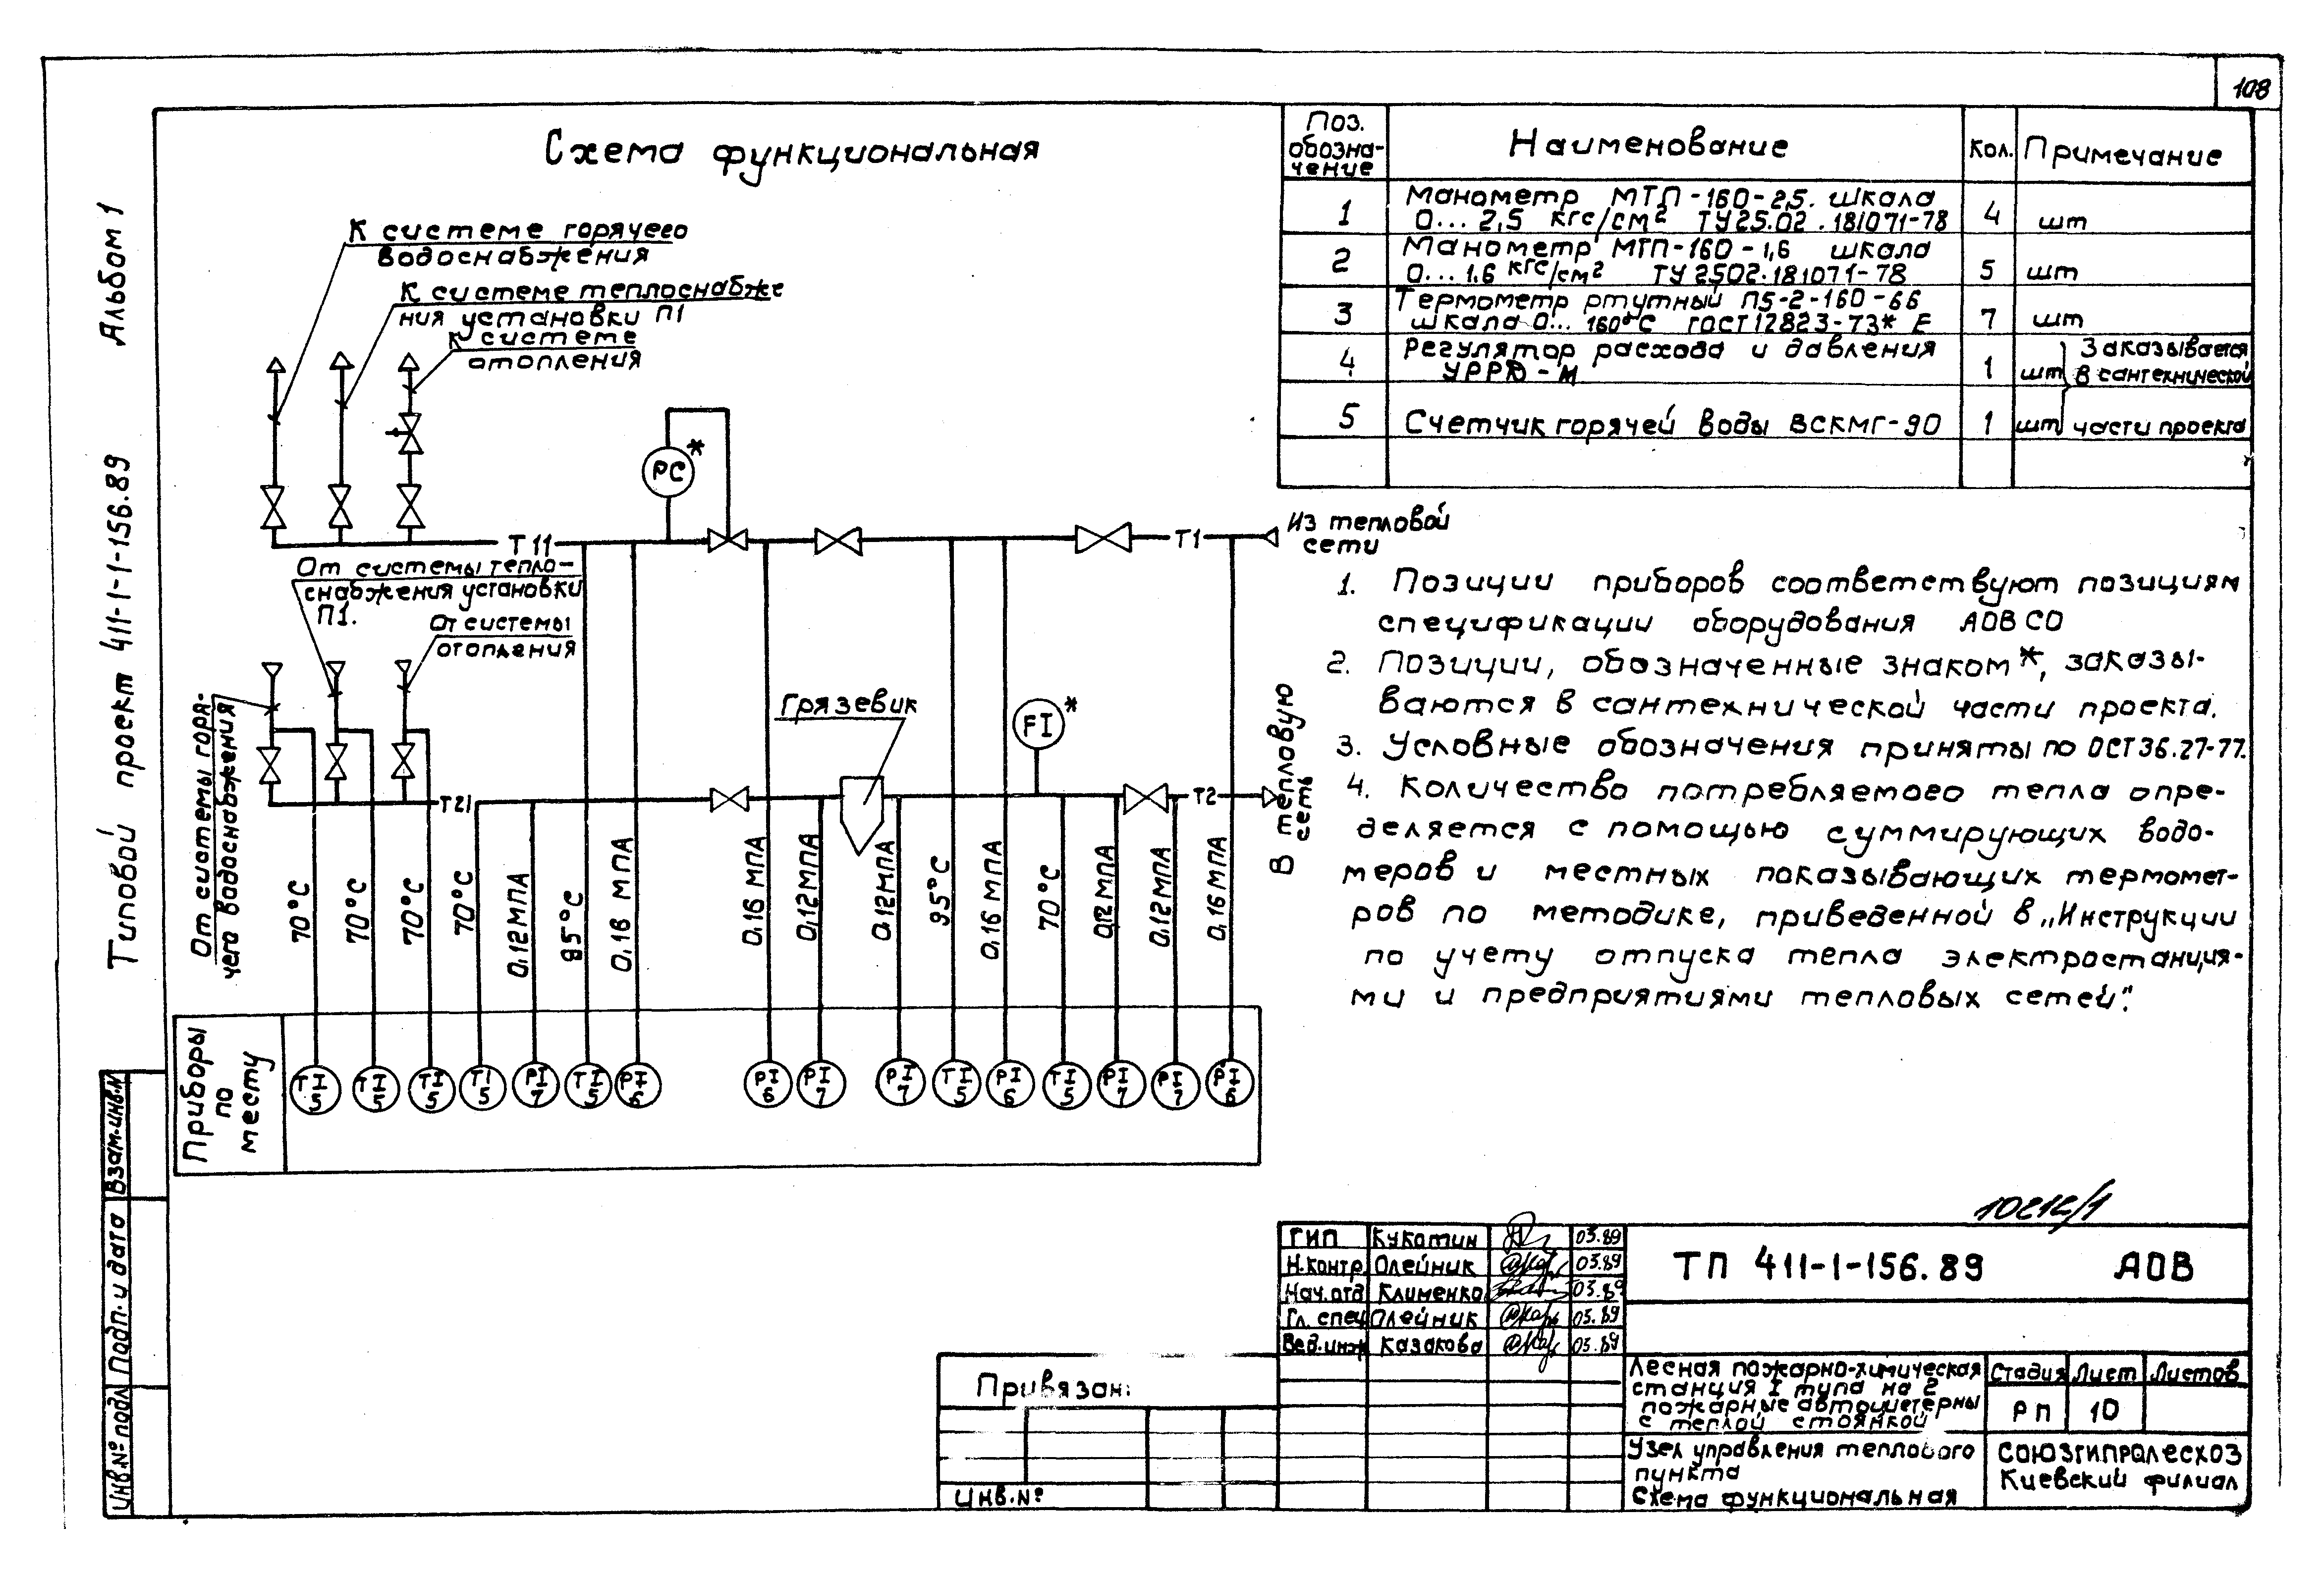 108
Альбом 1
Типовой проект 411-1-1-156.89
Схема функциональная
К системе горячего
водоснабжения
К системе теплоснабже
ния установки П1
К системе
отопления
PC
*
Т11
Т1
Из тепловой
сети
От системы тепло-
снабжения установки
П1.
От системы
отопления
От системы горя-
чего водоснабжения
Грязевик
FI
*
Т21
Т2
В тепловую
сеть
70°С
70°С
70°С
70°С
0,12МПА
95°С
0,16 МПА
0,16 МПА
0,12МПА
0,12МПА
95°С
0,16 МПА
70°С
0,12 МПА
0,12МПА
0,16МПА
Приборы
по
месту
TI 5
TI 5
TI 5
TI 5
PI 7
TI 5
PI 6
PI 6
PI 7
PI 7
TI 5
PI 6
TI 5
PI 7
PI 7
PI 6
Поз. обозна- чение Наименование Кол. Примечание
1 Манометр МТП-160-2,5. шкала
0...2,5 кгс/см² ТУ25.02.181071-78 4 шт
2 Манометр МТП-160-1,6 шкала
0...1.6 кгс/см² ТУ2502.181071-78 5 шт
3 Термометр ртутный П5-2-160-66
шкала 0...160°С ГОСТ12823-73* Е 7 шт
4 Регулятор расхода и давления
УРРД-М 1 шт Заказывается
в сантехнической
5 Счетчик горячей воды ВСКМГ-90 1 шт части проекта
1. Позиции приборов соответствуют позициям
спецификации оборудования АОВ СО
2. Позиции, обозначенные знаком *, заказы-
ваются в сантехнической части проекта.
3. Условные обозначения приняты по ОСТ36.27-77.
4. Количество потребляемого тепла опре-
деляется с помощью суммирующих водо-
меров и местных показывающих термомет-
ров по методике, приведенной в „Инструкции
по учету отпуска тепла электростанция-
ми и предприятиями тепловых сетей".
10212/1
ГИП Кукотин 03.89
Н.контр. Олейник 03.89
Нач.отд Клименко 03.89
Гл. спец Олейник 03.89
Вед.инж Казакова 03.89
ТП 411-1-156.89 АОВ
Лесная пожарно-химическая
станция I типа на 2
пожарные автоцистерны
с теплой стоянкой
Стадия Лист Листов
РП 10
Узел управления теплового
пункта
Схема функциональная
СОЮЗГИПРОЛЕСХОЗ
Киевский филиал
Привязан:
Инв.№
Взам.инв.№
Подп. и дата
Инв.№ подл